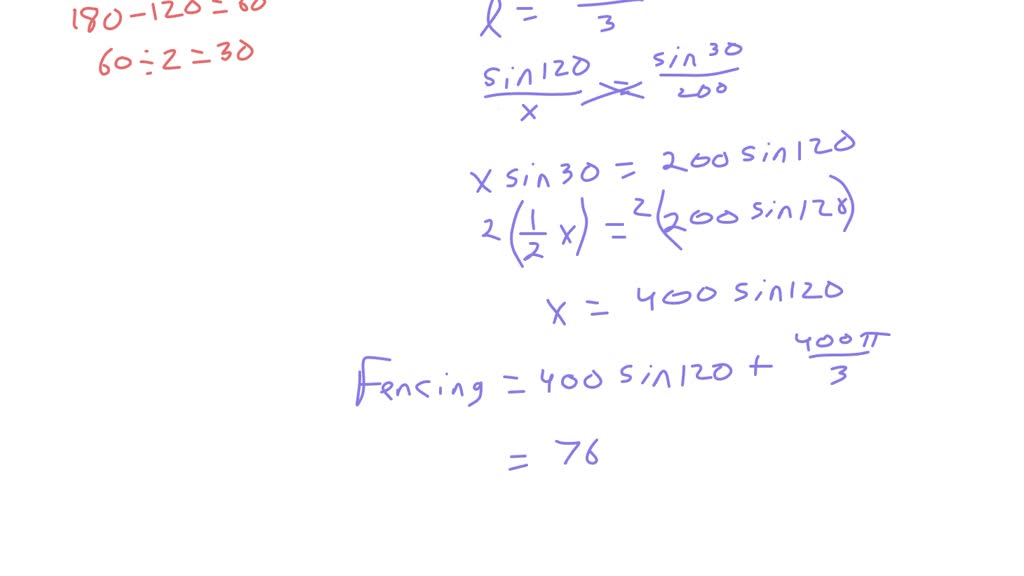 180 - 120 = 60
60 ÷ 2 = 30
l = /3
sin120/x = sin 30/200
x sin30 = 200 sin120
2(1/2 x) = 2(200 sin120)
x = 400 sin120
Fencing = 400 sin120 + 400π/3
= 76